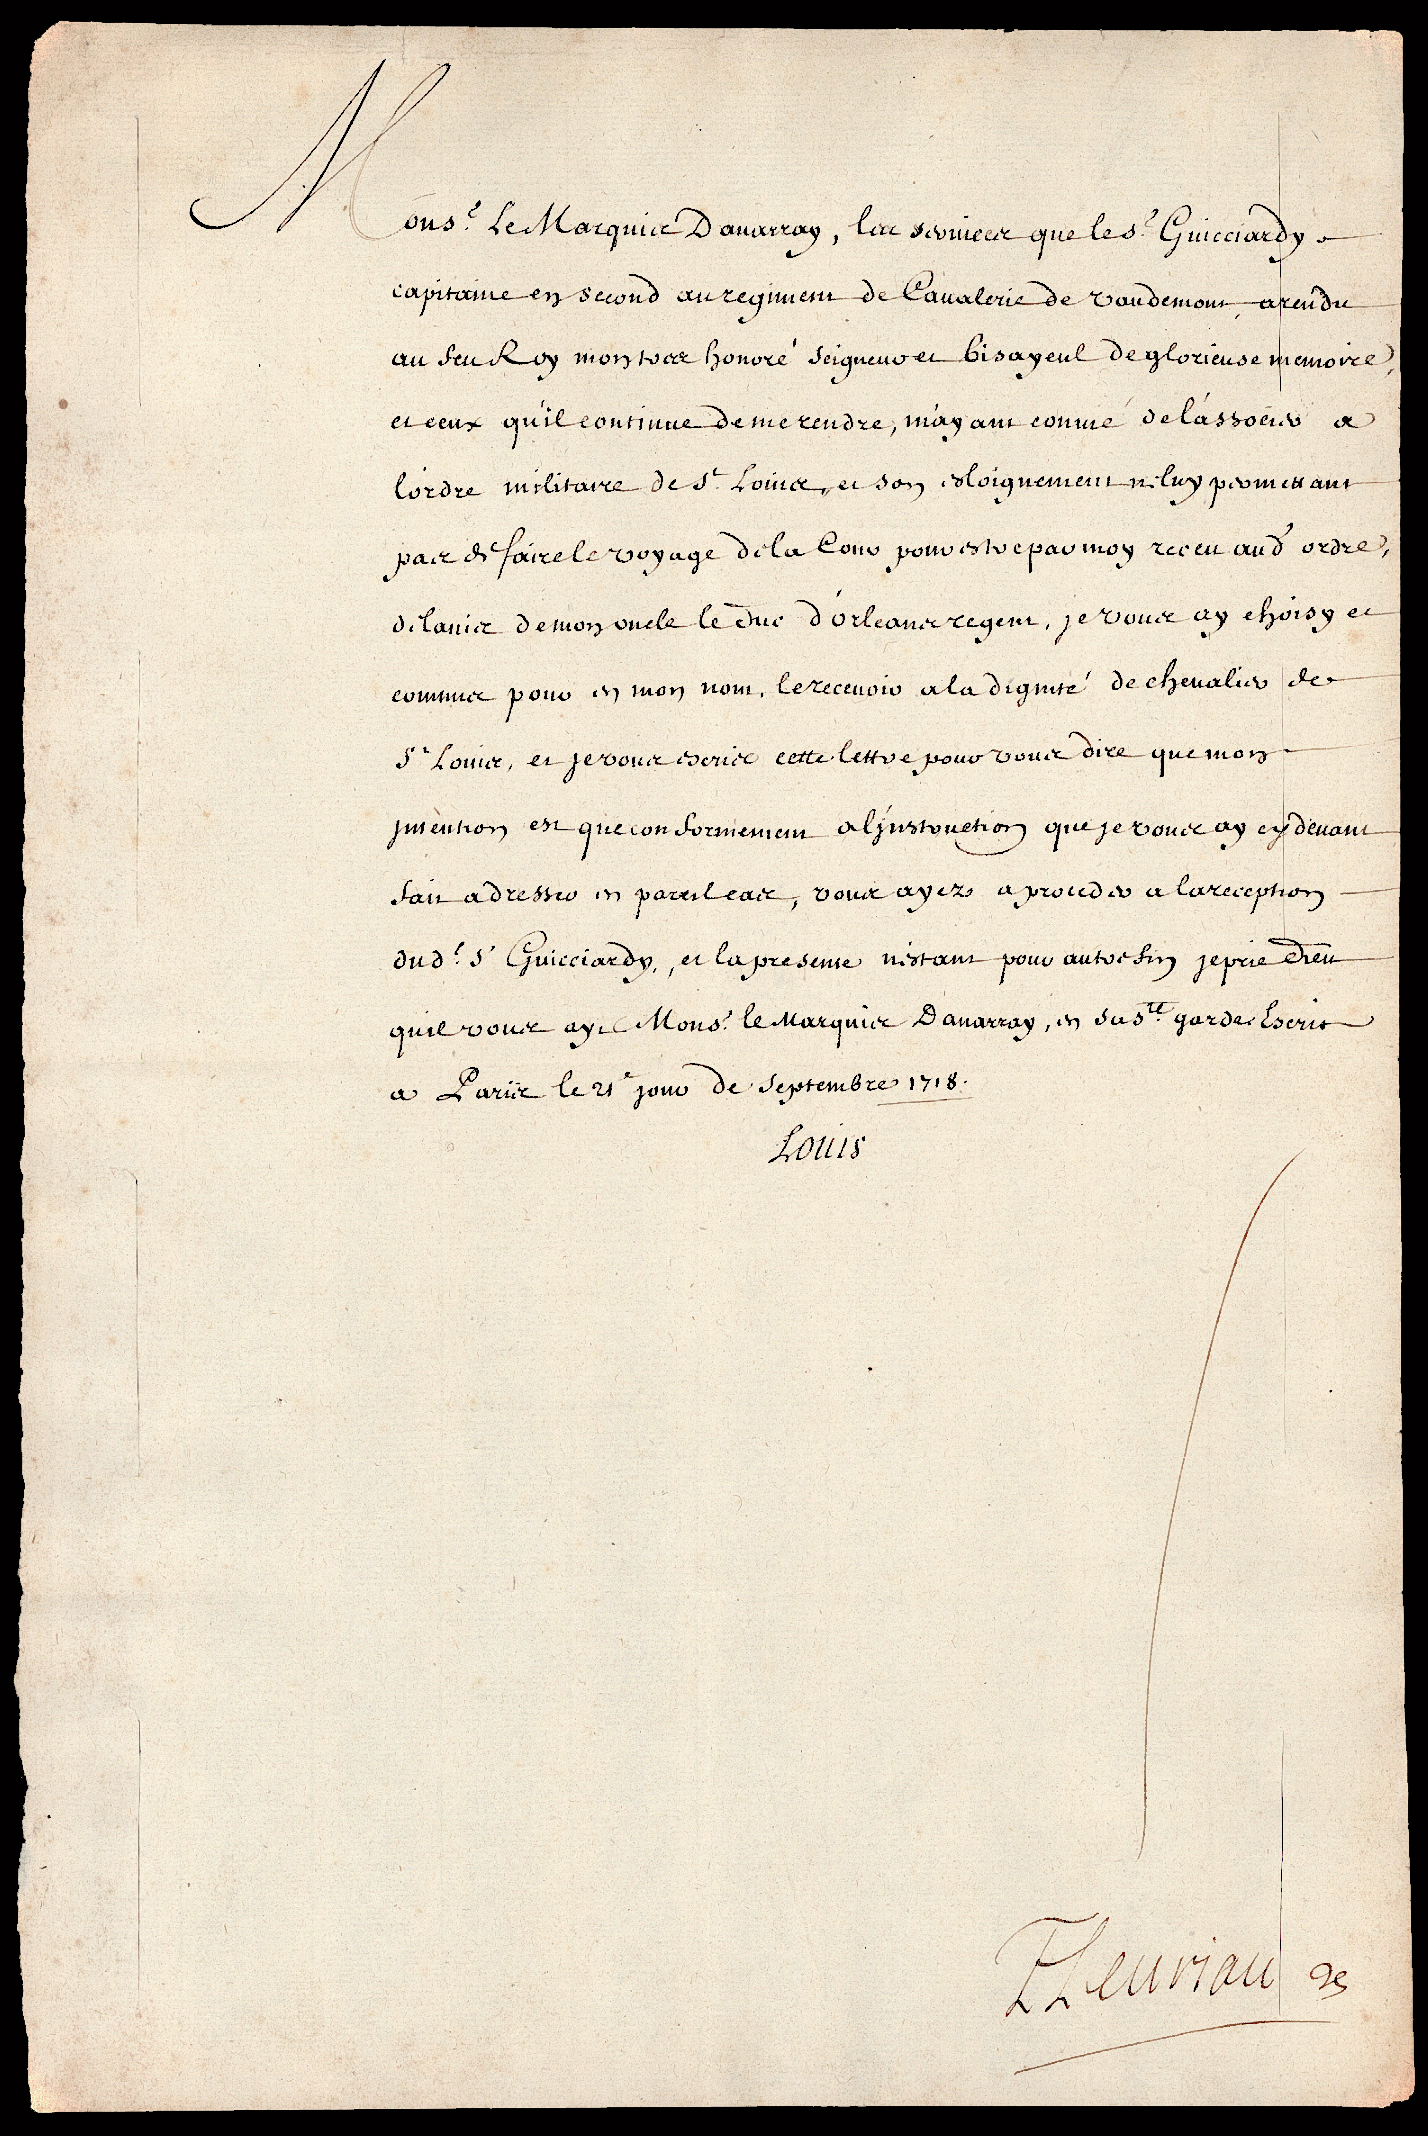 Mons.r Le Marquis Davarray, les services que le s.r Guicciardy
capitaine en second au regiment de Cavalerie de vaudemont, a rendu
au feu Roy mon tres honoré seigneur et bisayeul de glorieuse memoire,
et ceux qu'il continue de me rendre, m'ayant convié de l'associer a
l'ordre militaire de S.t Louis, et son esloignement ne luy permettant
pas de faire le voyage de la Cour pour estre par moy receu aud.t ordre,
de l'avis de mon oncle le Duc d'orleans regent, je vous ay choisy et
commis pour en mon nom, le recevoir a la dignité de chevalier de
S.t Louis, et je vous escris cette lettre pour vous dire que mon
jntention est que conformement a l'jnstruction que je vous ay cy devant
fait adresser en pareil cas, vous ayez a proceder a la reception
dud.t S.r Guicciardy, et la presente n'estant pour autre fin je prie Dieu
qu'il vous ayt Mons.r le Marquis Davarray, en sa s.te garde. Escrit
a Paris le 21.e jour de septembre 1718.
Louis
Fleuriau